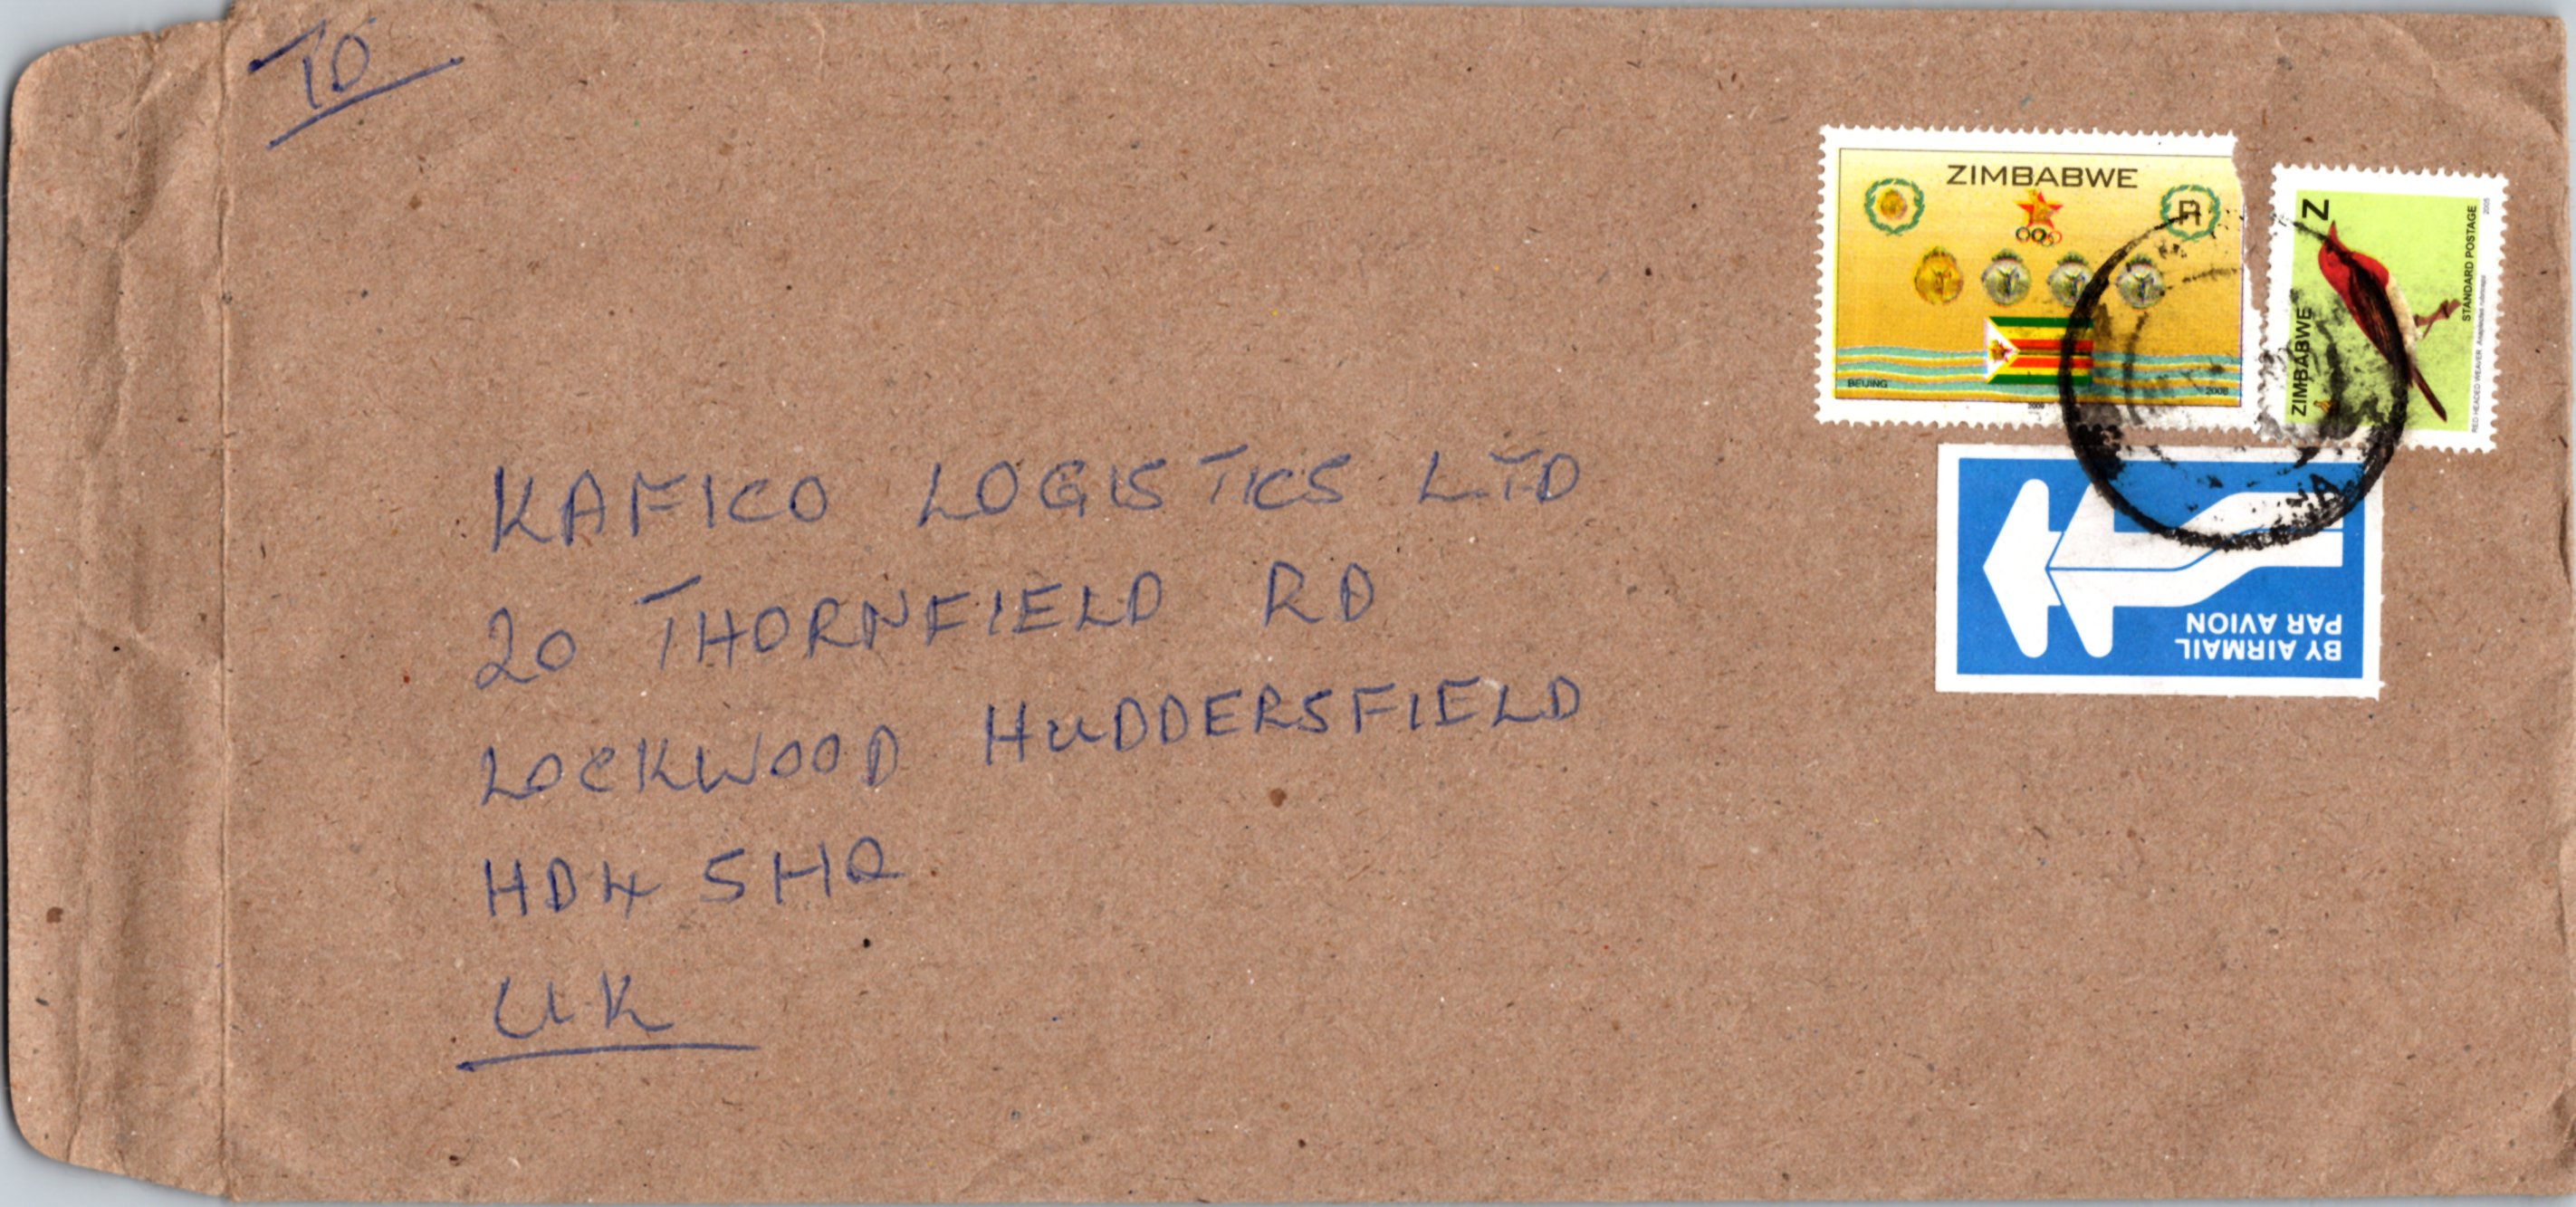 TO
KAFICO LOGISTICS LTD
20 THORNFIELD RD
LOCKWOOD HUDDERSFIELD
HD4 5HQ
UK
ZIMBABWE
R
BEIJING 2008
2008
Z
ZIMBABWE
STANDARD POSTAGE
RED HEADED WEAVER Anaplectes rubriceps
2005
BY AIRMAIL
PAR AVION